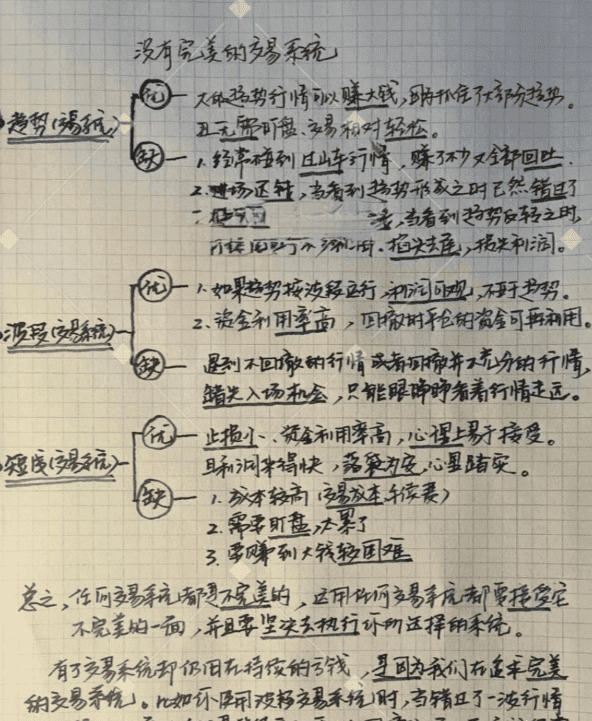 没有完美的交易系统
趋势(交易系统)
优
大的趋势行情可以赚大钱,即将抓住了大部分趋势。
且无需盯盘、交易相对轻松。
缺
1. 经常碰到过山车行情,赚了不少又全部回吐.
2. 进场迟钝,当看到趋势形成之时已然错过了
一
,当看到趋势反转之时,
掐头去尾,损失利润。
波段(交易系统)
优
1. 如果趋势按波段运行,利润可观,不亚于趋势。
2. 资金利用率高,回撤时平仓的资金可再利用。
缺
遇到不回撤的行情或者回撤并不充分的行情,
错失入场机会,只能眼睁睁看着行情走远。
短线(交易系统)
优
止损小、资金利用率高,心理上易于接受。
且利润来得快,落袋为安,心里踏实。
缺
1. 成本较高(交易成本手续费)
2. 需要盯盘,太累了
3. 要赚到大钱较困难
总之,任何交易系统都是不完美的,运用任何交易系统都要接受它
不完美的一面,并且要坚决去执行你所选择的系统。
有了交易系统却仍旧在持续的亏钱,是因为我们在追求完美
的交易系统。比如你使用波段交易系统时,当错过了一波行情